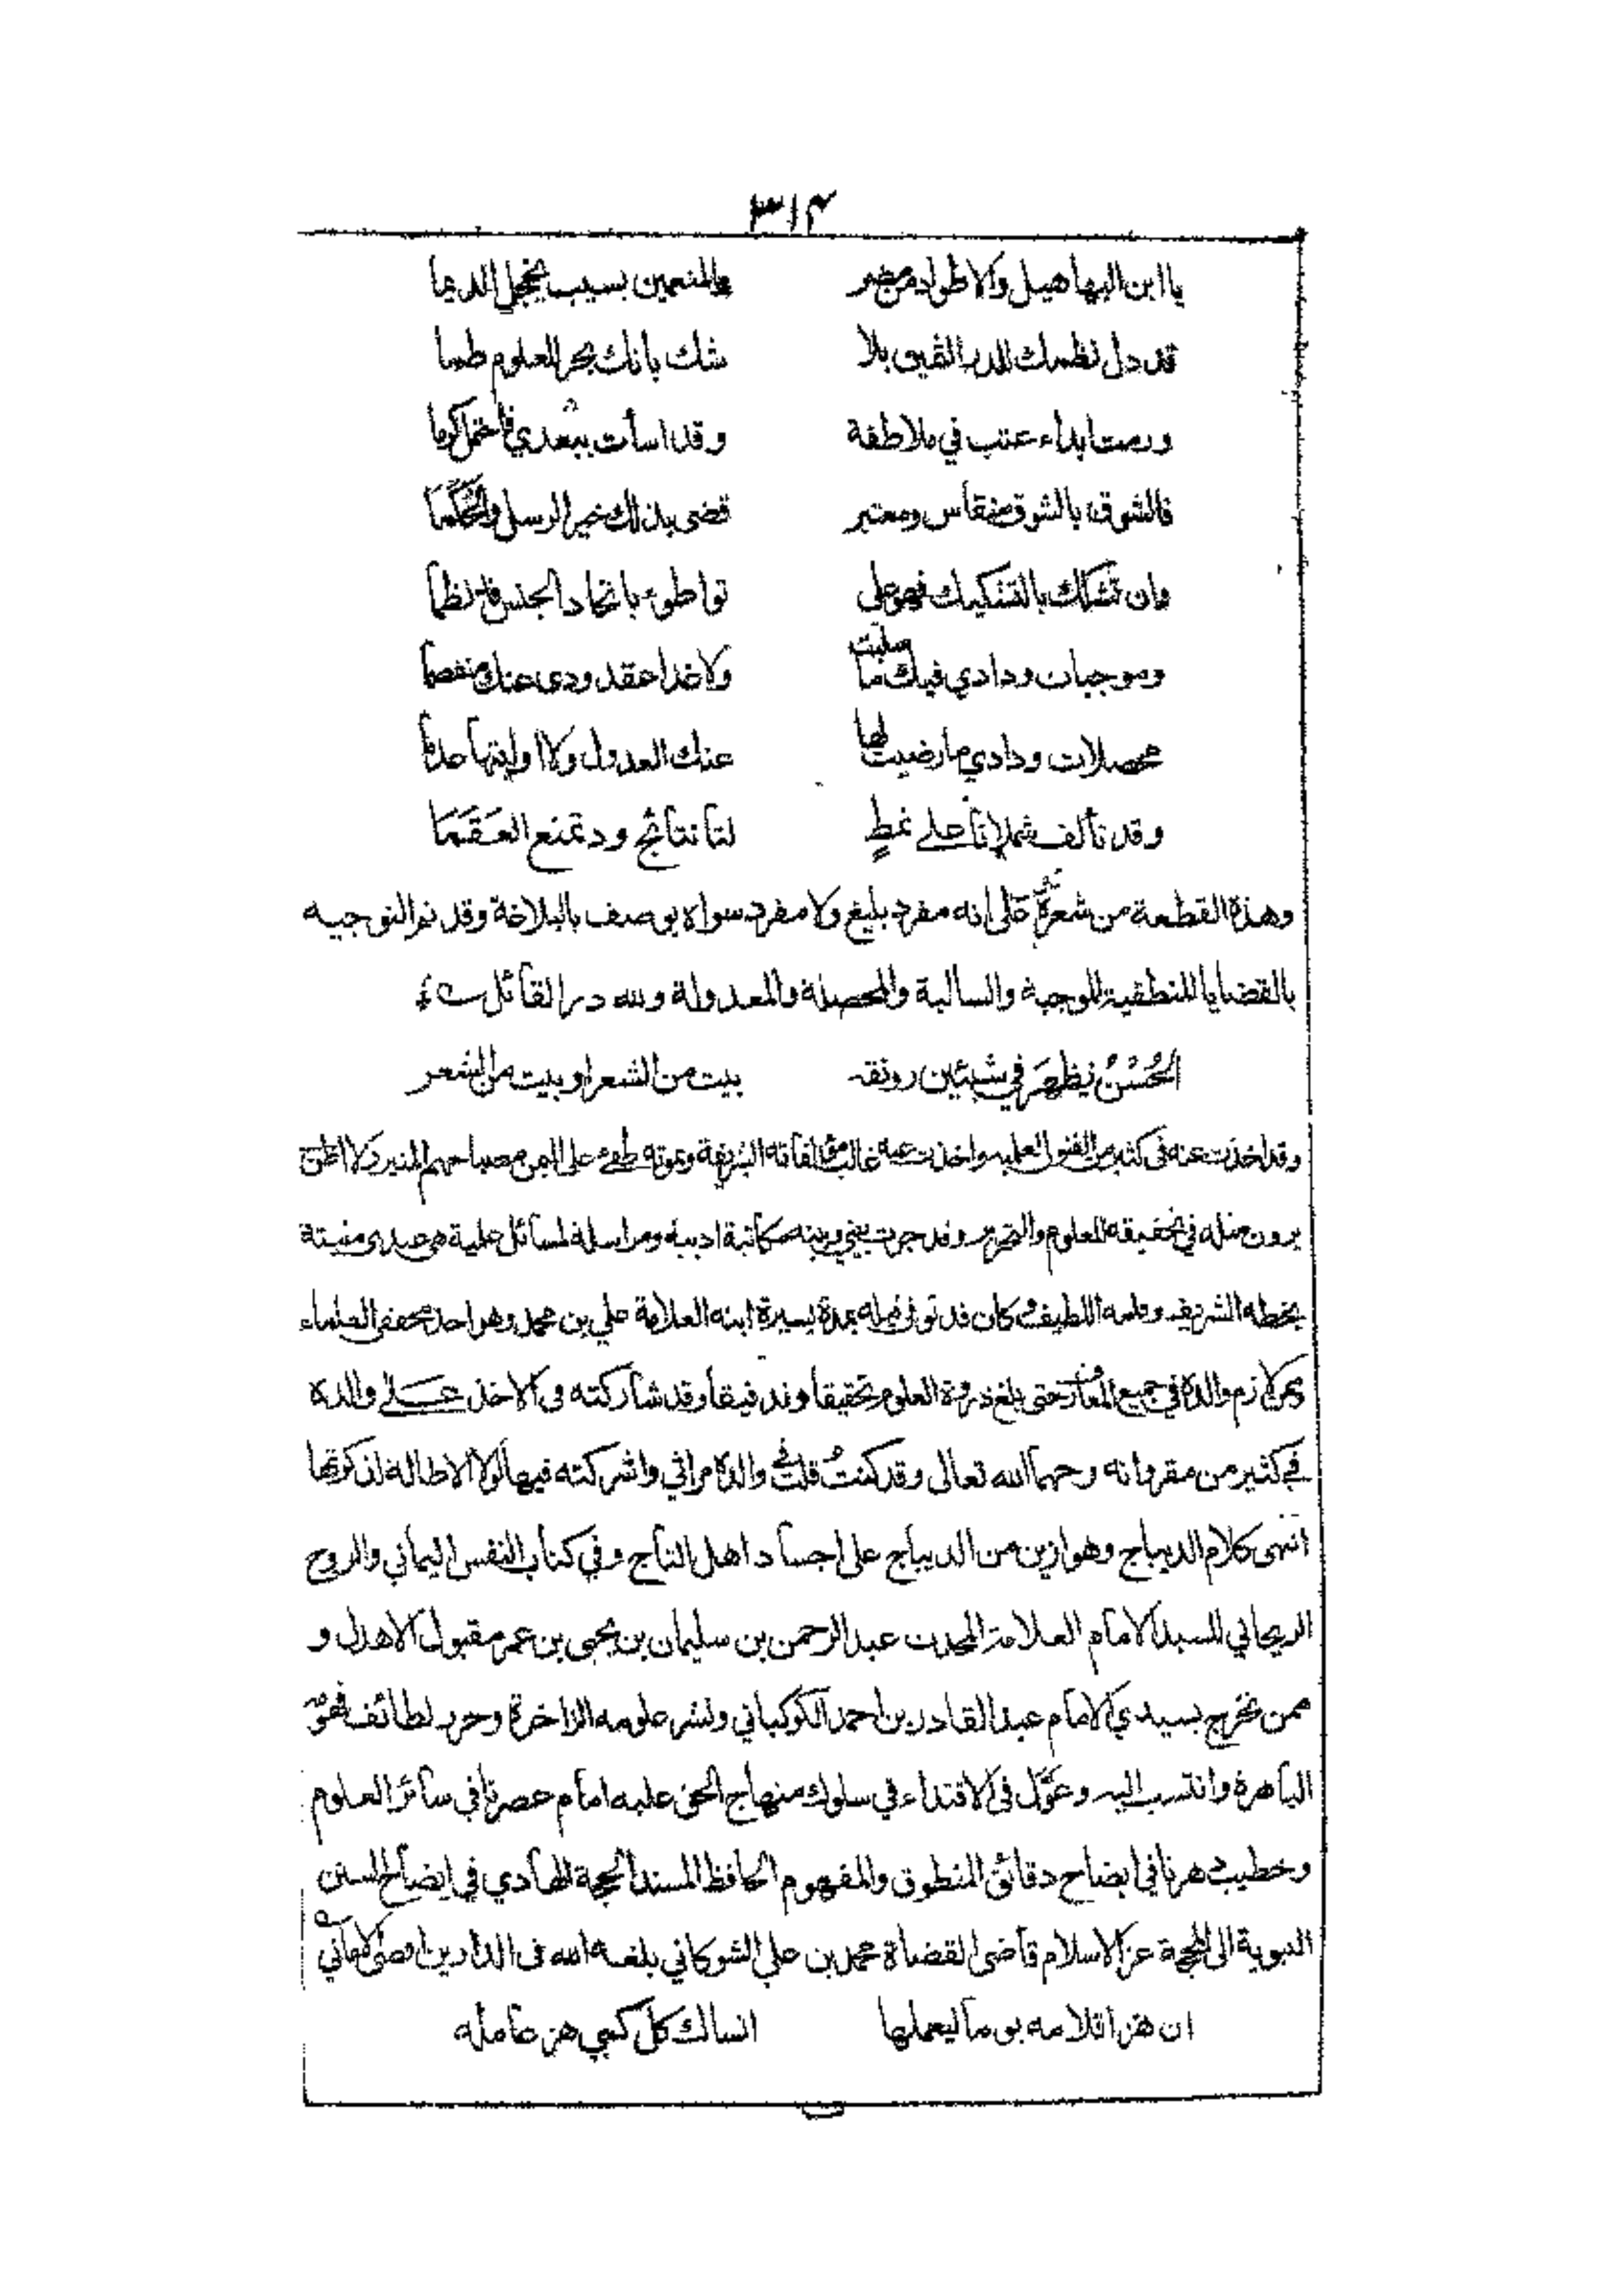 ٣١٤
يا ابن البهاهيل والاطواد من مضر والمنعمين بسيب يخجل الديما
قد دل نظمك للدر الثمين بلا شك بانك بحر للعلوم طما
ورمت ابداء عتب في ملاطفة وقد اسأت ببعدي فاحتمل كرما
فالشوق بالشوق منقاس ومعتبر قضى بذلك خير الرسل والحكما
وان تشكك بالتشكيك فهو على تواطوء باتحاد الجنس
وموجبات ودادي فيك ما سلبت ولا غدا عقد ودى عنك منفصما
محصلات ودادي ما رضيت لها عنك العدول ولا اوليتها عدما
وقد تألف شملانا على نمطٍ لنا نتائج ود تمنع العَقَمَا
وهذه القطعة من شعره تدل على انه مفرد بليغ ولا مفرد سواه يوصف بالبلاغة وقد تم التوجيه
بالقضايا المنطقية الموجبة والسالبة والمحصلة والمعدولة ولله در القائل
الحُسْنُ يظهَر في شيئين رونقه بيت من الشعر او بيت من الشعر
وقد اخذت عنه فى كثير من الفنون العلميه واخذت عنه غالب مؤلفاته الشريفة وبموته طفى على اليمن مصباحهم المنير ولا اظن
يرون مثله في تحقيقه للعلوم والتحرير وقد جرت بيني وبينه مكاتبة ادبيه ومراسلة لمسائل علمية هى عندى مثبتة
بخطه الشريف وقلمه اللطيف وكان قد توفي قبله بمدة يسيرة ابنه العلامة علي بن محمد وهو احد محققى العلماء
وممن لازم والده في جميع المعارف حتى بلغ ذروة العلوم تحقيقا وتدقيقا وقد شاركته فى الاخذ على والده
في كثير من مقروآته رحمهما الله تعالى وقد كنتُ قلت في والده مراثي واشركته فيها لولا الاطالة لذكرتها
انتهى كلام الديباج وهو ازين من الديباج على اجساد اهل التاج وفي كتاب النفس اليماني والروح
الريحاني للسيد الامام العلامة المحدث عبد الرحمن بن سليمان بن يحيى بن عمر مقبول الاهدل و
ممن تخرج بسيدي الامام عبد القادر بن احمد الكوكباني ونشر علومه الزاخرة وحرر لطائف فهومه
الباهرة وانتسب اليه وعَوَّل فى الاقتداء في سلوك منهاج الحق عليه امام عصرنا في سائر العلوم
وخطيب دهرنا في ايضاح دقائق المنطوق والمفهوم الحافظ المسند الحجة الهادي في ايضاح السنن
النبوية الى المحجة عز الاسلام قاضى القضاة محمد بن علي الشوكاني بلغه الله فى الدارين اقصى الاماني
ان هز اقلامه يوما ليعملها انساك كل كمي هز عامله